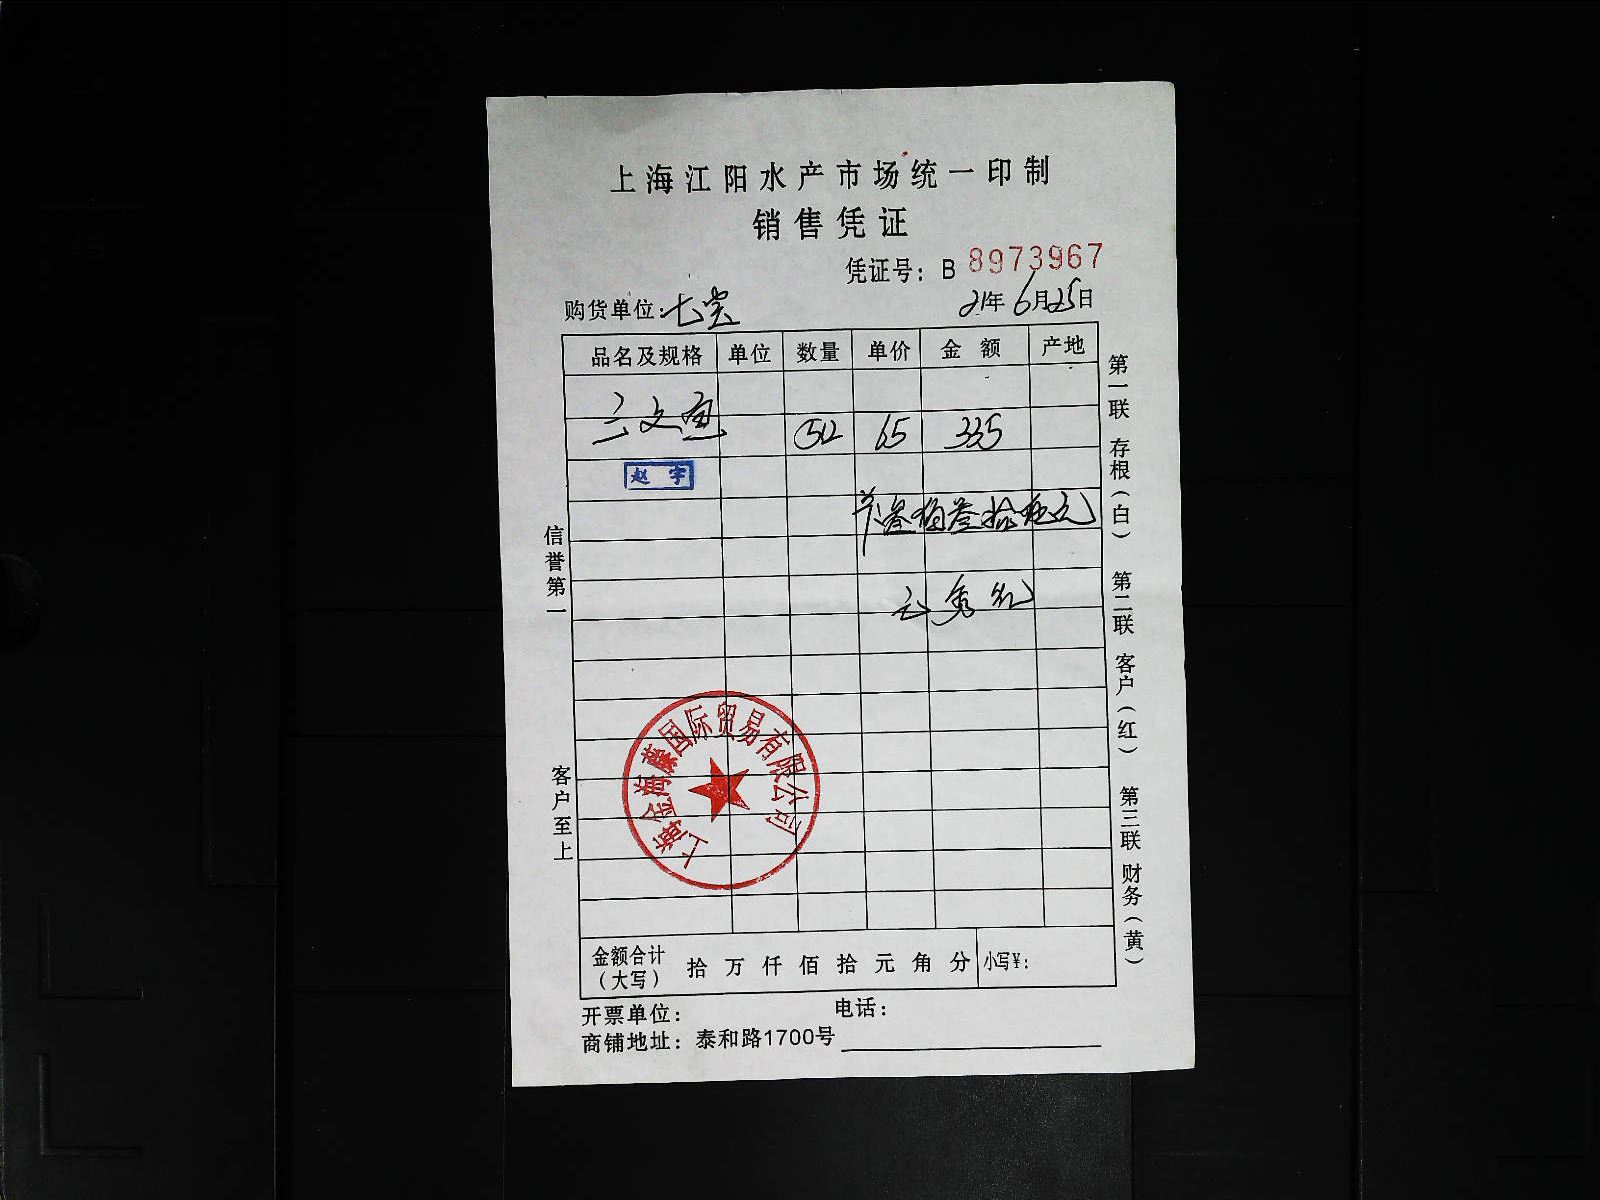 上海江阳水产市场统一印制
销售凭证
凭证号：B 8973967
购货单位：七宝
21年6月25日
品名及规格 单位 数量 单价 金额 产地
三文鱼 65 335
赵宇
叁佰叁拾伍元
秀红
信誉第一
客户至上
第一联 存根（白） 第二联 客户（红） 第三联 财务（黄）
上海金海藤国际贸易有限公司
金额合计（大写） 拾 万 仟 佰 拾 元 角 分 小写¥：
开票单位： 电话：
商铺地址：泰和路1700号